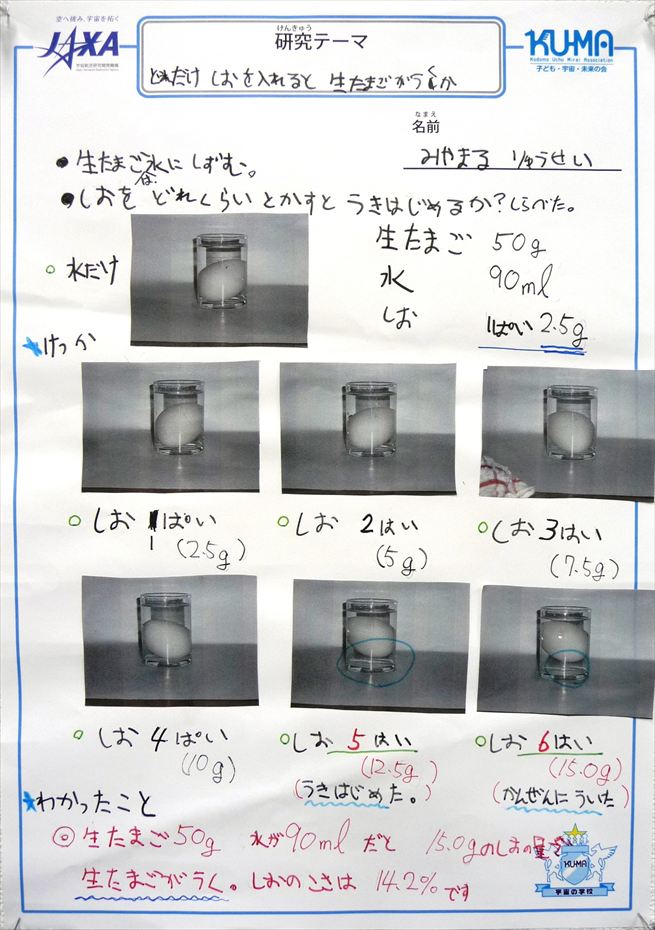 空へ挑み、宇宙を拓く
JAXA
宇宙航空研究開発機構
けんきゅう
研究テーマ
どれだけ しおを入れると 生たまごがうくか
KU-MA
Kodomo Uchu Mirai Association
子ども・宇宙・未来の会
なまえ
名前
みやまる りゅうせい
●生たまごは水にしずむ。
●しおを どれくらい とかすと うきはじめるか?しらべた。
○水だけ
生たまご 50g
水 90ml
しお 1ぱい 2.5g
★けっか
○しお 1ぱい
(2.5g)
○しお 2はい
(5g)
○しお 3はい
(7.5g)
○しお 4はい
(10g)
○しお 5はい
(12.5g)
(うきはじめた。)
○しお 6はい
(15.0g)
(かんぜんにういた)
★わかったこと
◎生たまご50g 水が90mlだと 15.0gのしおの量で
生たまごがうく。しおのこさは 14.2%です
KU-MA
宇宙の学校